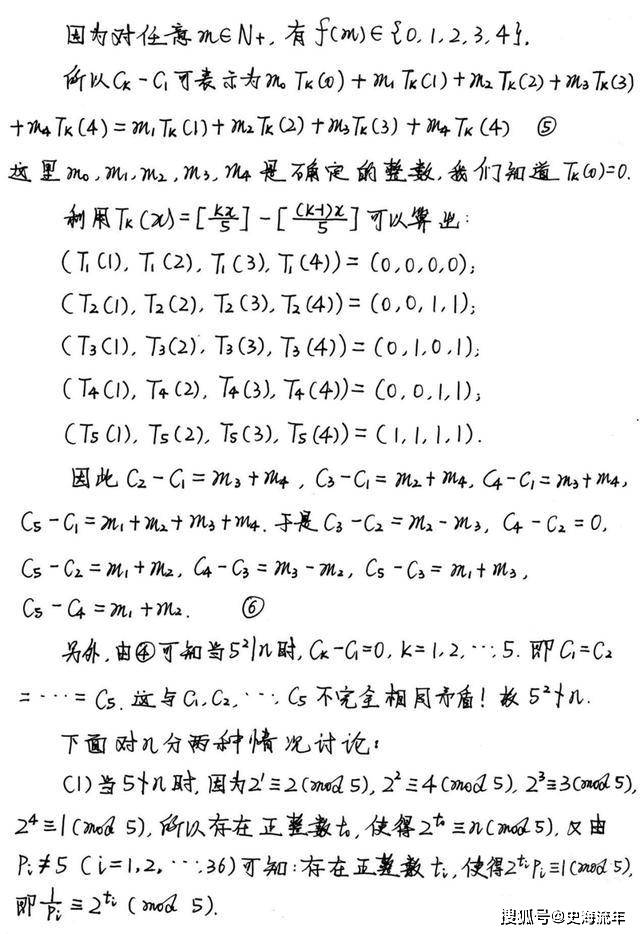 因为对任意m∈N+, 有f(m)∈{0,1,2,3,4},
所以Ck-C1可表示为m0Tk(0)+m1Tk(1)+m2Tk(2)+m3Tk(3)
+m4Tk(4)=m1Tk(1)+m2Tk(2)+m3Tk(3)+m4Tk(4) ⑤
这里m0,m1,m2,m3,m4是确定的整数,我们知道Tk(0)=0.
利用Tk(x)=[kx/5]-[(k-1)x/5]可以算出:
(T1(1), T1(2), T1(3), T1(4))=(0,0,0,0);
(T2(1), T2(2), T2(3), T2(4))=(0,0,1,1);
(T3(1), T3(2), T3(3), T3(4))=(0,1,0,1);
(T4(1), T4(2), T4(3), T4(4))=(0,0,1,1);
(T5(1), T5(2), T5(3), T5(4))=(1,1,1,1).
因此C2-C1=m3+m4, C3-C1=m2+m4, C4-C1=m3+m4,
C5-C1=m1+m2+m3+m4. 于是C3-C2=m2-m3, C4-C2=0,
C5-C2=m1+m2, C4-C3=m3-m2, C5-C3=m1+m3,
C5-C4=m1+m2. ⑥
另外,由④可知当5²|n时, Ck-C1=0, k=1,2,…,5. 即C1=C2
=…=C5. 这与C1,C2,…,C5不完全相同矛盾! 故5²∤n.
下面对n分两种情况讨论:
(1)当5∤n时,因为2¹≡2(mod 5), 2²≡4(mod 5), 2³≡3(mod 5),
2⁴≡1(mod 5), 所以存在正整数t0, 使得2^t0≡n(mod 5), 又由
Pi≠5 (i=1,2,…,36)可知:存在正整数ti, 使得2^ti Pi≡1(mod 5),
即1/Pi≡2^ti (mod 5).
搜狐号@史海流年